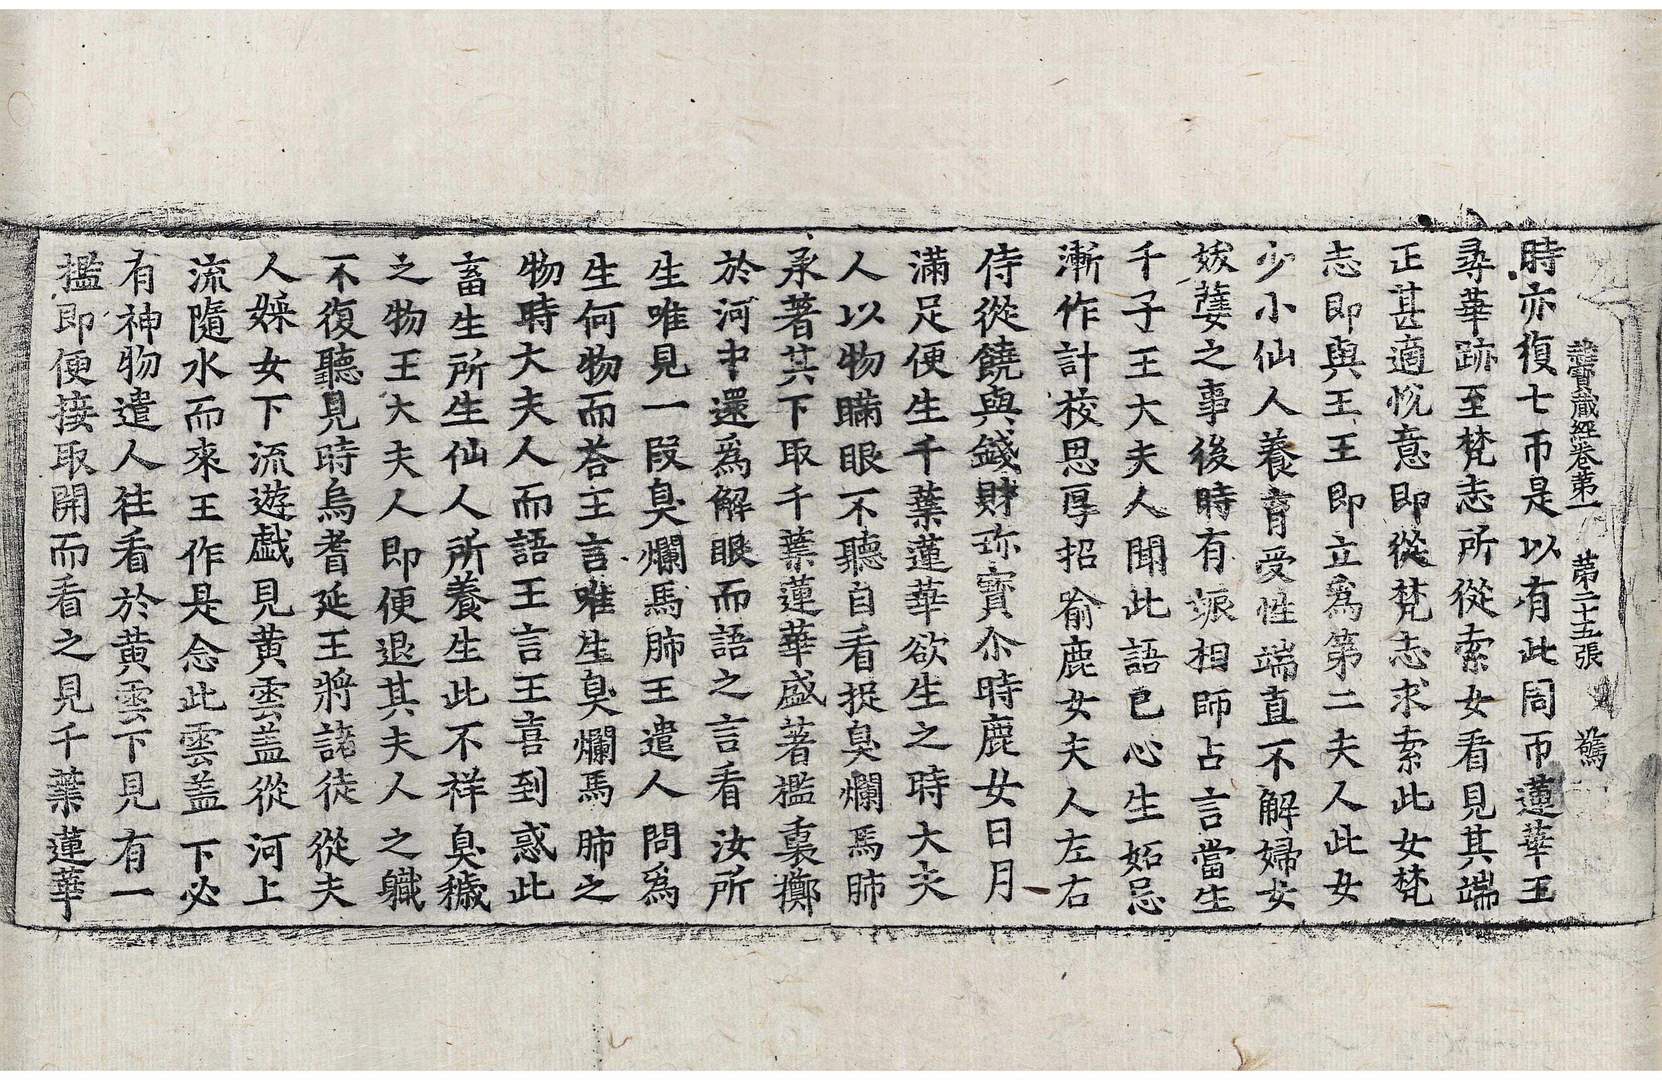 雜寶藏經卷第一 第二十五張 驚
時亦復七帀是以有此同帀蓮華王
尋華跡至梵志所從索女看見其端
正甚適悅意即從梵志求索此女梵
志即與王王即立爲第二夫人此女
少小仙人養育受性端直不解婦女
妭嬖之事後時有娠相師占言當生
千子王大夫人聞此語已心生妬忌
漸作計校恩厚招喻鹿女夫人左右
侍從饒與錢財珎寶尒時鹿女日月
滿足便生千葉蓮華欲生之時大夫
人以物瞞眼不聽自看捉臭爛馬肺
承著其下取千葉蓮華盛著檻裏擲
於河中還爲解眼而語之言看汝所
生唯見一段臭爛馬肺王遣人問爲
生何物而荅王言唯生臭爛馬肺之
物時大夫人而語王言王喜到惑此
畜生所生仙人所養生此不祥臭穢
之物王大夫人即便退其夫人之軄
不復聽見時烏耆延王將諸徒從夫
人婇女下流遊戱見黄雲盖從河上
流隨水而來王作是念此雲盖下必
有神物遣人往看於黄雲下見有一
檻即便接取開而看之見千葉蓮華